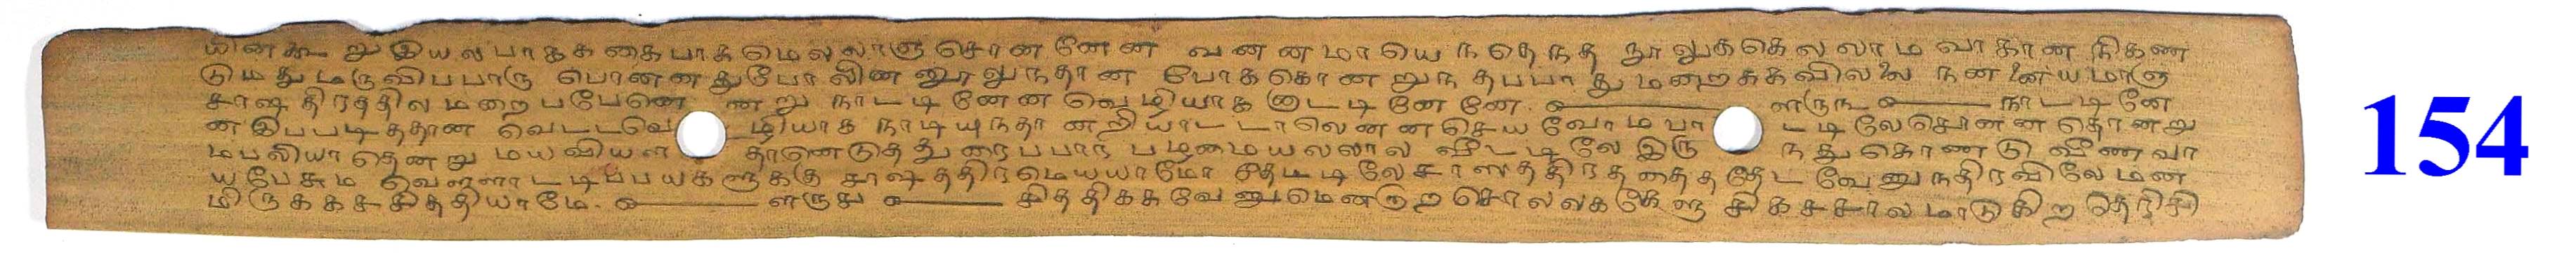 யினகூறுஇயலபாகககதைபாகமெலலாஞசொனனேன வனனமாயெநதெநத நூலுககெலலாம வாகான நிகண
டுமதுமருவிபபாரு பொனனதுபோலினனூலுநதான போககொணறுநதபபாதுமனறசுகவிலலை நனனையமாளு
சாஷதிரததிலமறைபபேனெ னறு நாடடினேன வெழியாக டைடினேனே. ளருந நாடடினே
னஇபபடிததான வெடடவெ ழியாக நாடியுநதானறியாடடாலெனனசெயவோமபா டடிலேசொனனதொனறு
மபலியாதெனறு மயவியள தானெடுததுரைபபார பழமையலலால வீடடிலேஇரு நதுகொணடு வீணவா
யபேசும வெளளாடடிபபயகளுககு சாஷததிரமெயயாமோ சீதடடிலேசாஸததிரததைததேட வேனுநதிரவிலேமன
மிருகககசசிததியாமே. ளருசு சிததிககவேணுமெனறுறசொலலககேளு சிகசசாலமாடுகிற தெரிசி